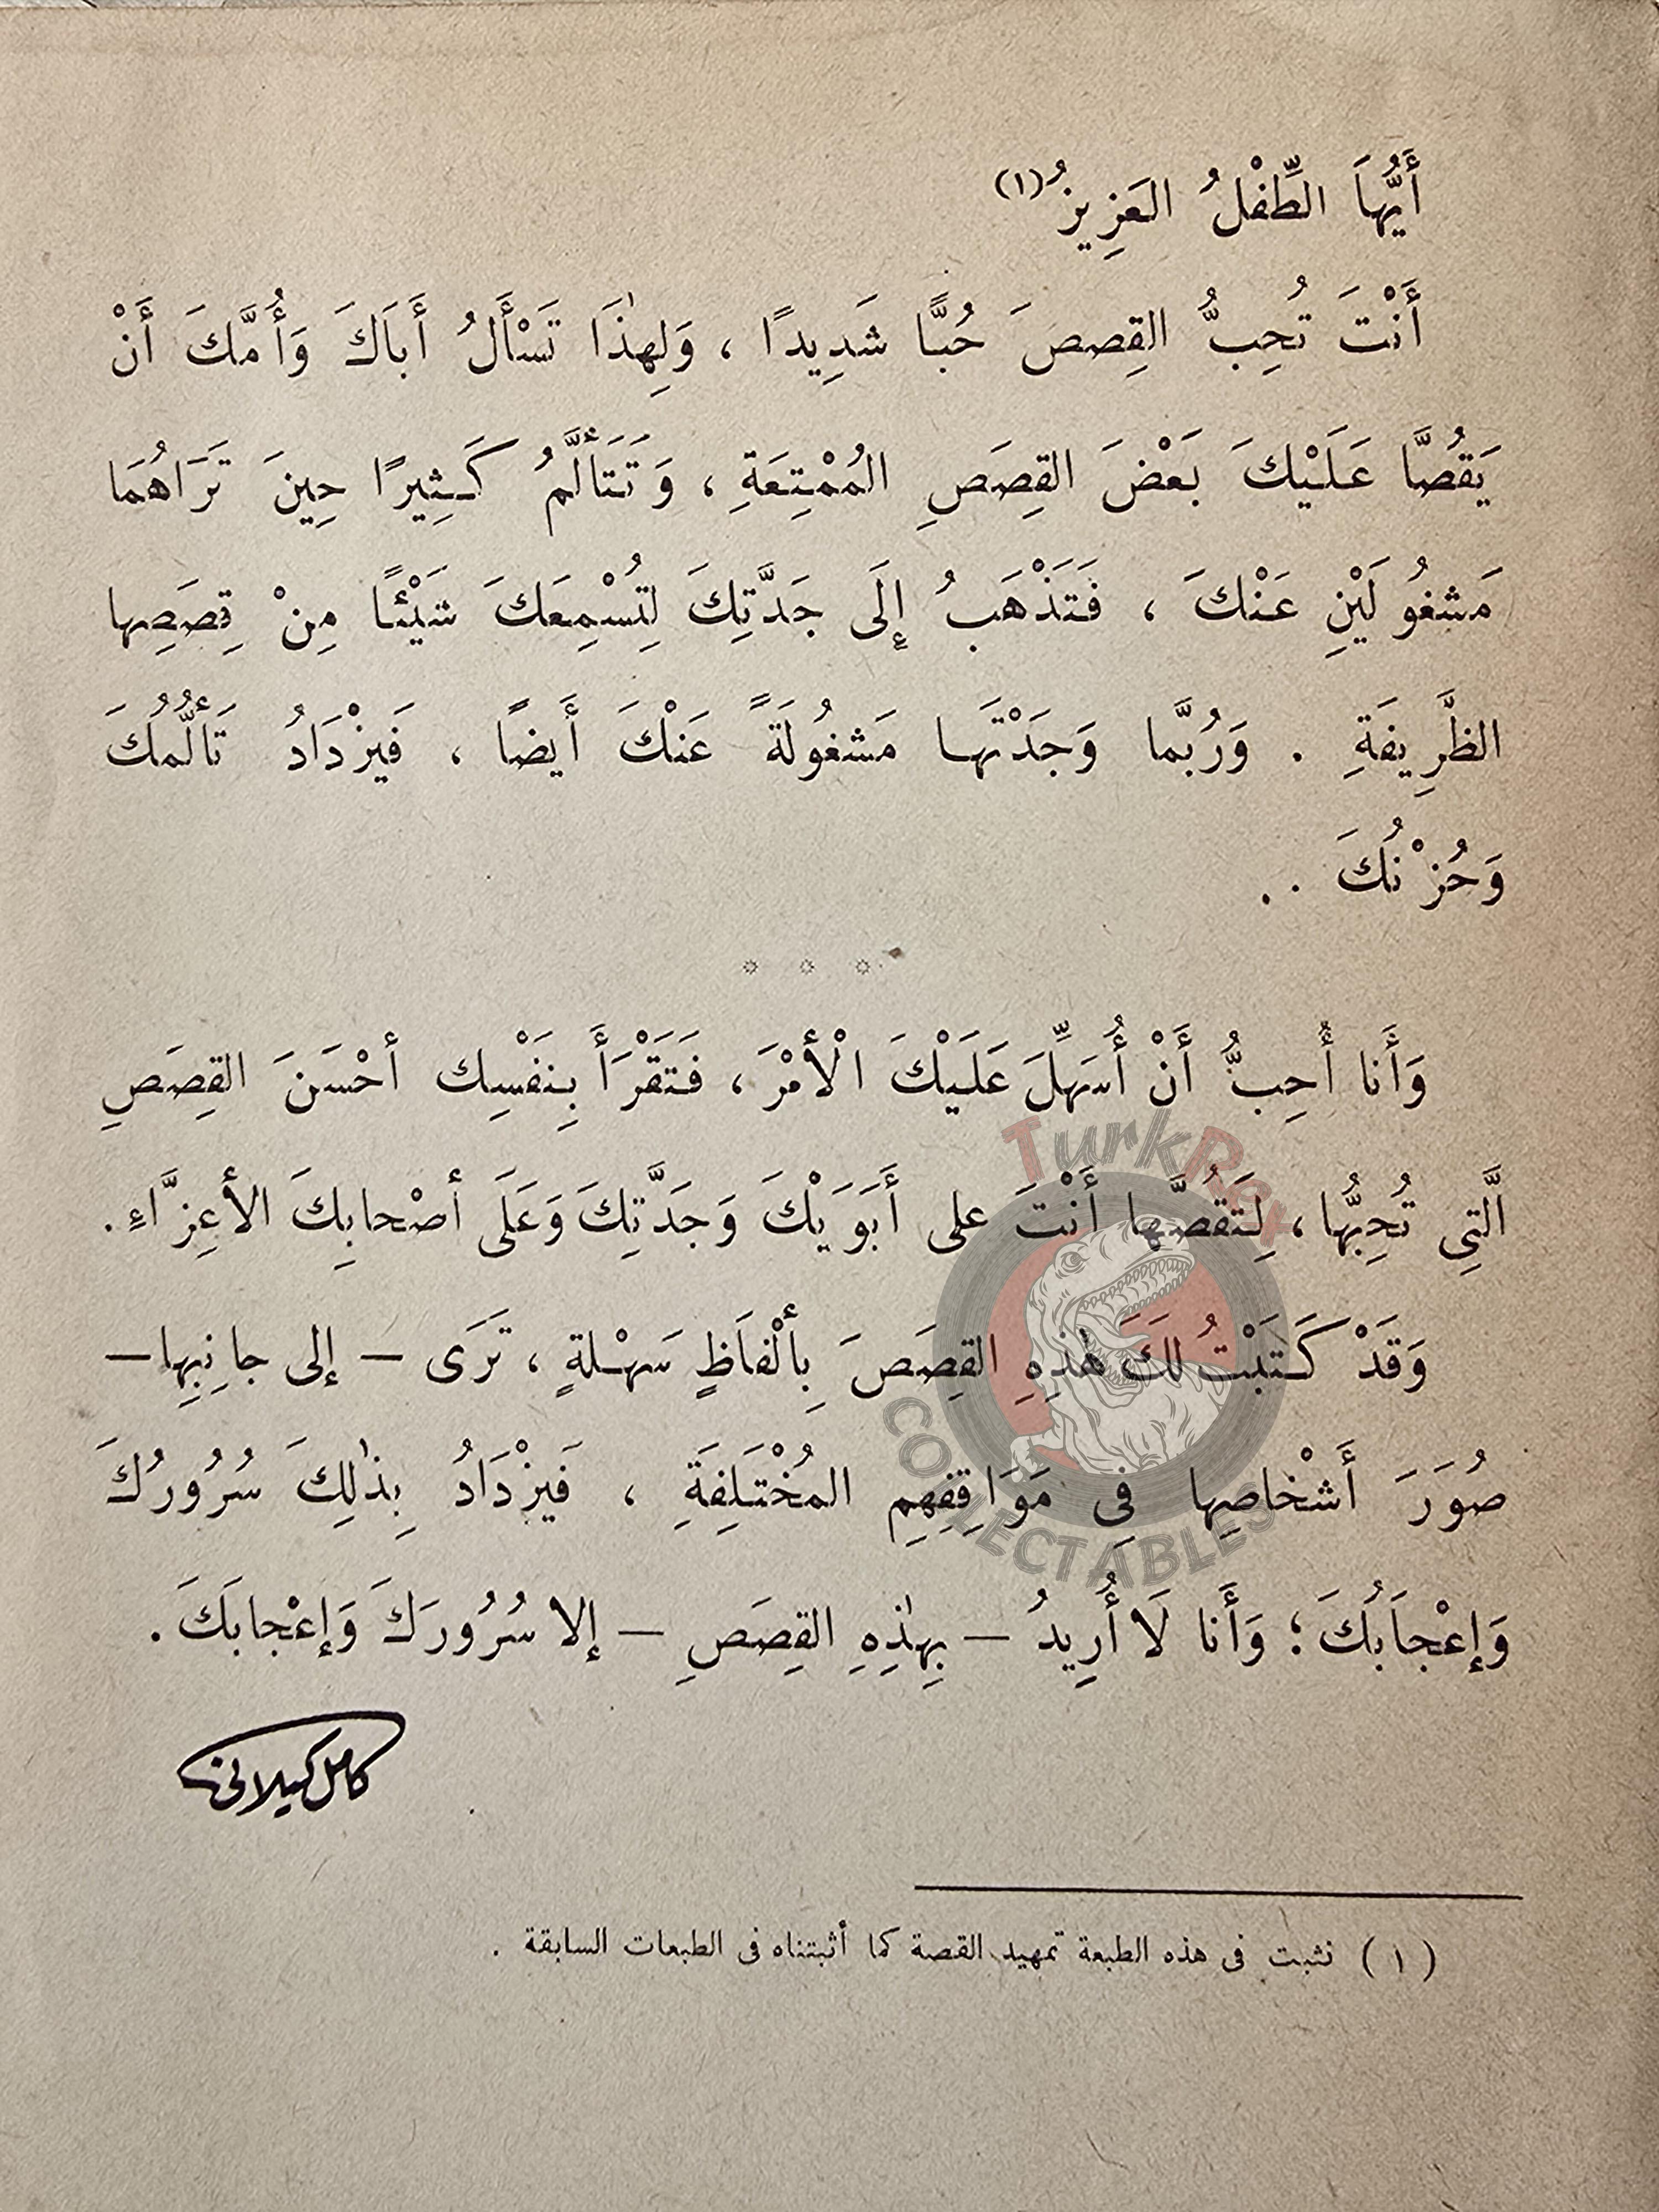 أَيُّهَا الطِّفْلُ العَزِيزُ(١)
أَنْتَ تُحِبُّ القِصصَ حُبًّا شَدِيدًا ، وَلِهٰذَا تَسْأَلُ أَبَاكَ وَأُمَّكَ أَنْ
يَقُصَّا عَلَيْكَ بَعْضَ القِصَصِ المُمْتِعَةِ ، وَتَتَأَلَّمُ كَثِيرًا حِينَ تَرَاهُمَا
مَشغُولَيْنِ عَنْكَ ، فَتَذْهَبُ إِلَى جَدَّتِكَ لِتُسْمِعَكَ شَيْئًا مِنْ قِصَصِها
الظَّرِيفَةِ . وَرُبَّما وَجَدْتَها مَشغُولَةً عَنْكَ أَيضًا ، فَيَزْدَادُ تَأَلُّمُكَ
وَحُزْنُكَ . .
* * *
وَأَنا أُحِبُّ أَنْ أُسَهِّلَ عَلَيْكَ الْأَمْرَ ، فَتَقْرَأَ بِنَفْسِك أحْسَنَ القِصَصِ
الَّتِى تُحِبُّها ، لِتَقُصَّها أَنْتَ على أَبَوَيْكَ وَجَدَّتِكَ وَعَلَى أصْحابِكَ الأَعِزَّاءِ .
وَقَدْ كَتَبْتُ لَكَ هٰذِهِ القِصَصَ بِأَلْفَاظٍ سَهْلةٍ ، تَرَى — إلى جانِبِها —
صُوَرَ أَشْخاصِها فِى مَوَاقِفِهِم المُخْتَلِفَةِ ، فَيَزْدَادُ بِذٰلِكَ سُرُورُكَ
وَإعْجَابُكَ ؛ وَأَنا لَا أُرِيدُ — بِهٰذِهِ القِصَصِ — إلا سُرُورَكَ وَإعْجابَكَ .
كامل كيلانى
(١) نثبت فى هذه الطبعة تمهيد القصة كما أثبتناه فى الطبعات السابقة .
TurkRex
COLLECTABLES